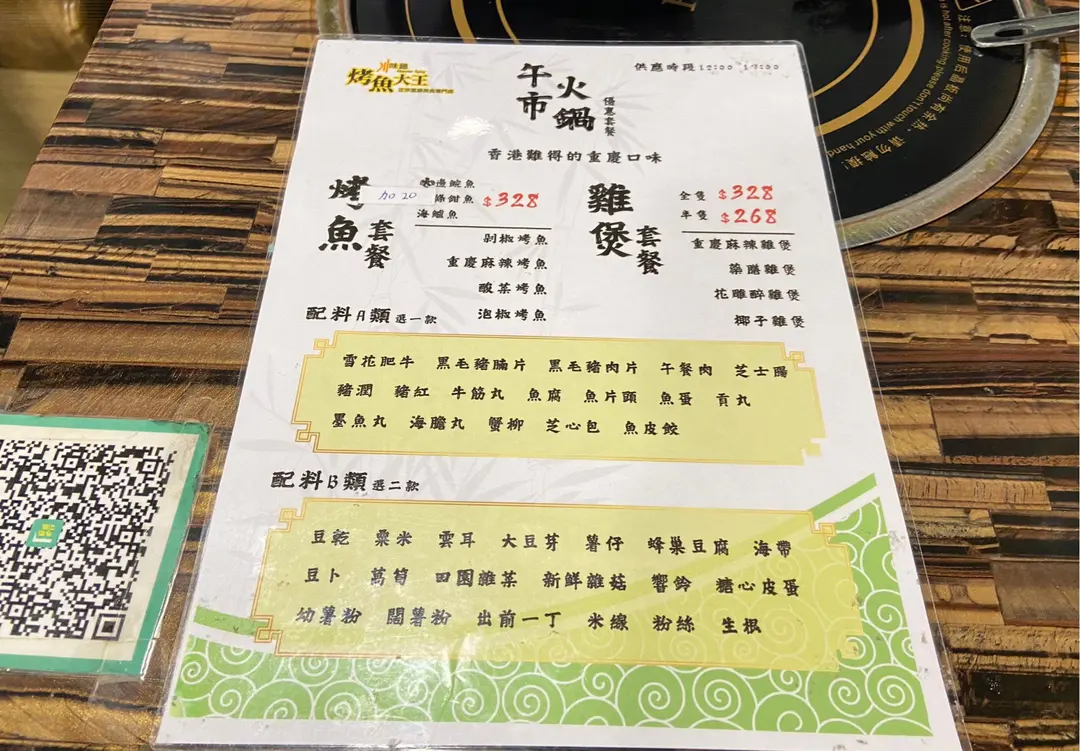 川味道
烤魚大王
供應時段12:00-17:00
午市
火鍋
優惠套餐
香港難得的重慶口味
烤魚
套餐
加20
邊鯇魚
條鉗魚
海鱸魚
$328
剁椒烤魚
重慶麻辣烤魚
酸菜烤魚
泡椒烤魚
雞煲
套餐
全隻 $328
半隻 $268
重慶麻辣雞煲
藥膳雞煲
花雕醉雞煲
椰子雞煲
配料A類 選一款
雪花肥牛 黑毛豬腩片 黑毛豬肉片 午餐肉 芝士腸
豬潤 豬紅 牛筋丸 魚腐 魚片頭 魚蛋 貢丸
墨魚丸 海膽丸 蟹柳 芝心包 魚皮餃
配料B類 選二款
豆乾 粟米 雲耳 大豆芽 薯仔 蜂巢豆腐 海帶
豆卜 萵筍 田園雜菜 新鮮雜菇 響鈴 糖心皮蛋
幼薯粉 闊薯粉 出前一丁 米線 粉絲 生根
注意：使用后晶板尚有余热，请勿触摸！
is hot after cooking please don't touch with your hand